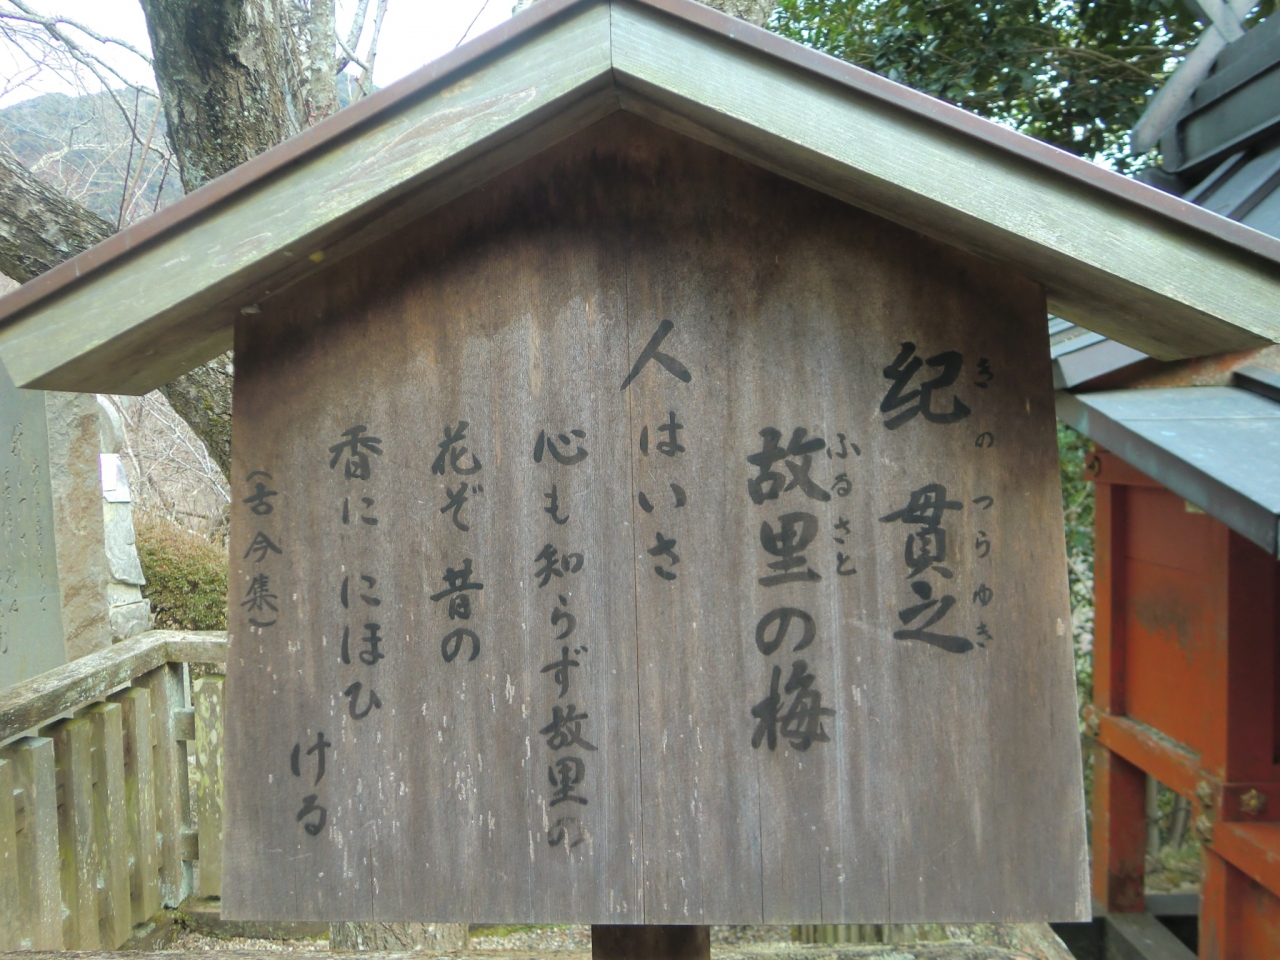 紀貫之
きのつらゆき
故里の梅
ふるさと
人はいさ
心も知らず故里の
花ぞ昔の
香ににほひ
ける
(古今集)